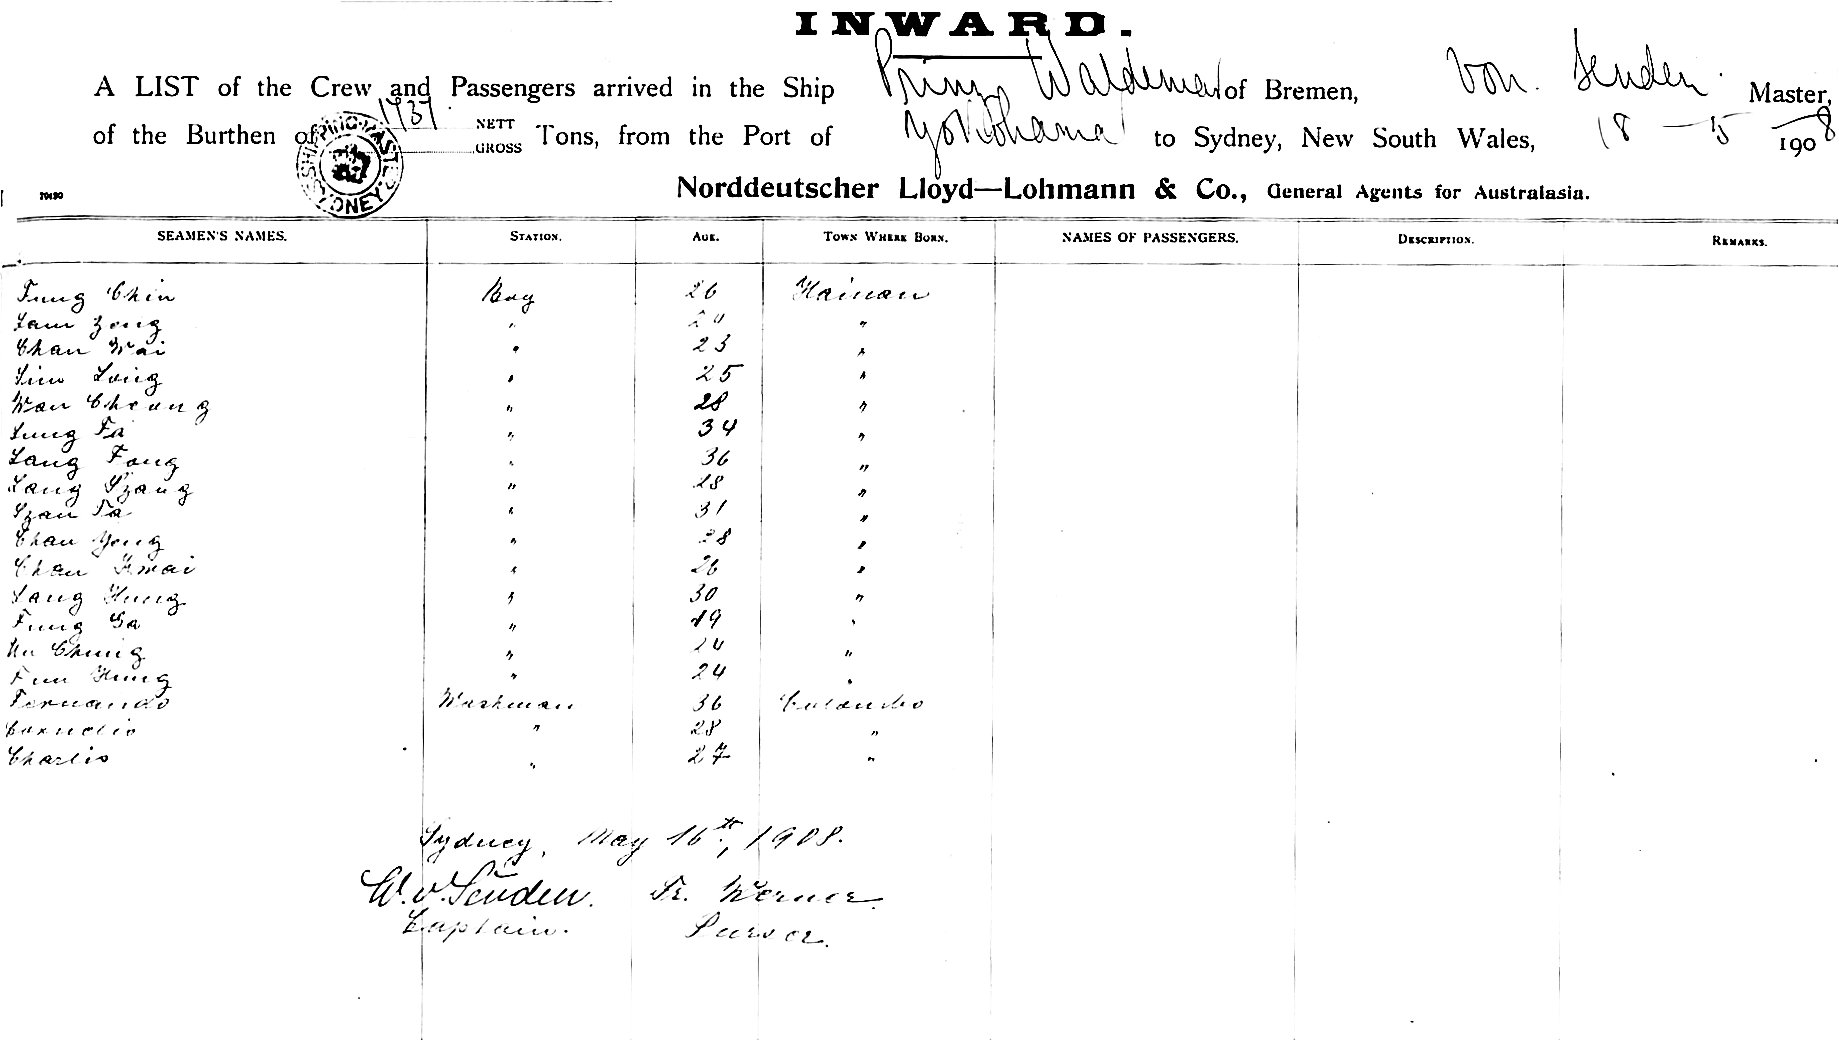 INWARD.
A LIST of the Crew and Passengers arrived in the Ship Prinz Waldemar of Bremen, Von Senden Master,
of the Burthen of 1737 NETT GROSS Tons, from the Port of Yokohama to Sydney, New South Wales, 18 - 5 1908
SHIPPING MASTER SYDNEY
70430 Norddeutscher Lloyd—Lohmann & Co., General Agents for Australasia.
SEAMEN'S NAMES. STATION. AGE. TOWN WHERE BORN. NAMES OF PASSENGERS. DESCRIPTION. REMARKS.
Fung Chin Boy 26 Hainan
Lam Zong " "
Chan Wai " 23 "
Lim Loing " 25 "
Wan Cheung " 28 "
Lung Fa " 34 "
Lang Fong " 36 "
Lang Szang " 28 "
Szan Ta " 31 "
Chan Yong " 28 "
Chan Kwai " 26 "
Lang Hung " 30 "
Fung Ga " 19 "
Chung " 24 "
Fun Hung " 24 "
Fernando Washman 36 Colombo
Cornelio " 28 "
Charlis " 27 "
Sydney, May 16th, 1908.
W. v. Senden. Fr. Werner.
Captain. Purser.